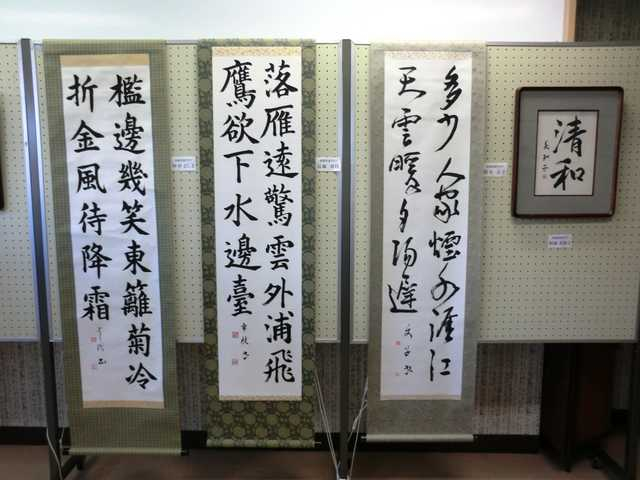 檻邊幾笑東籬菊冷
折金風待降霜
落雁遠驚雲外浦飛
鷹欲下水邊臺
多少人家煙水涯江
天雲暖夕陽遲
清和